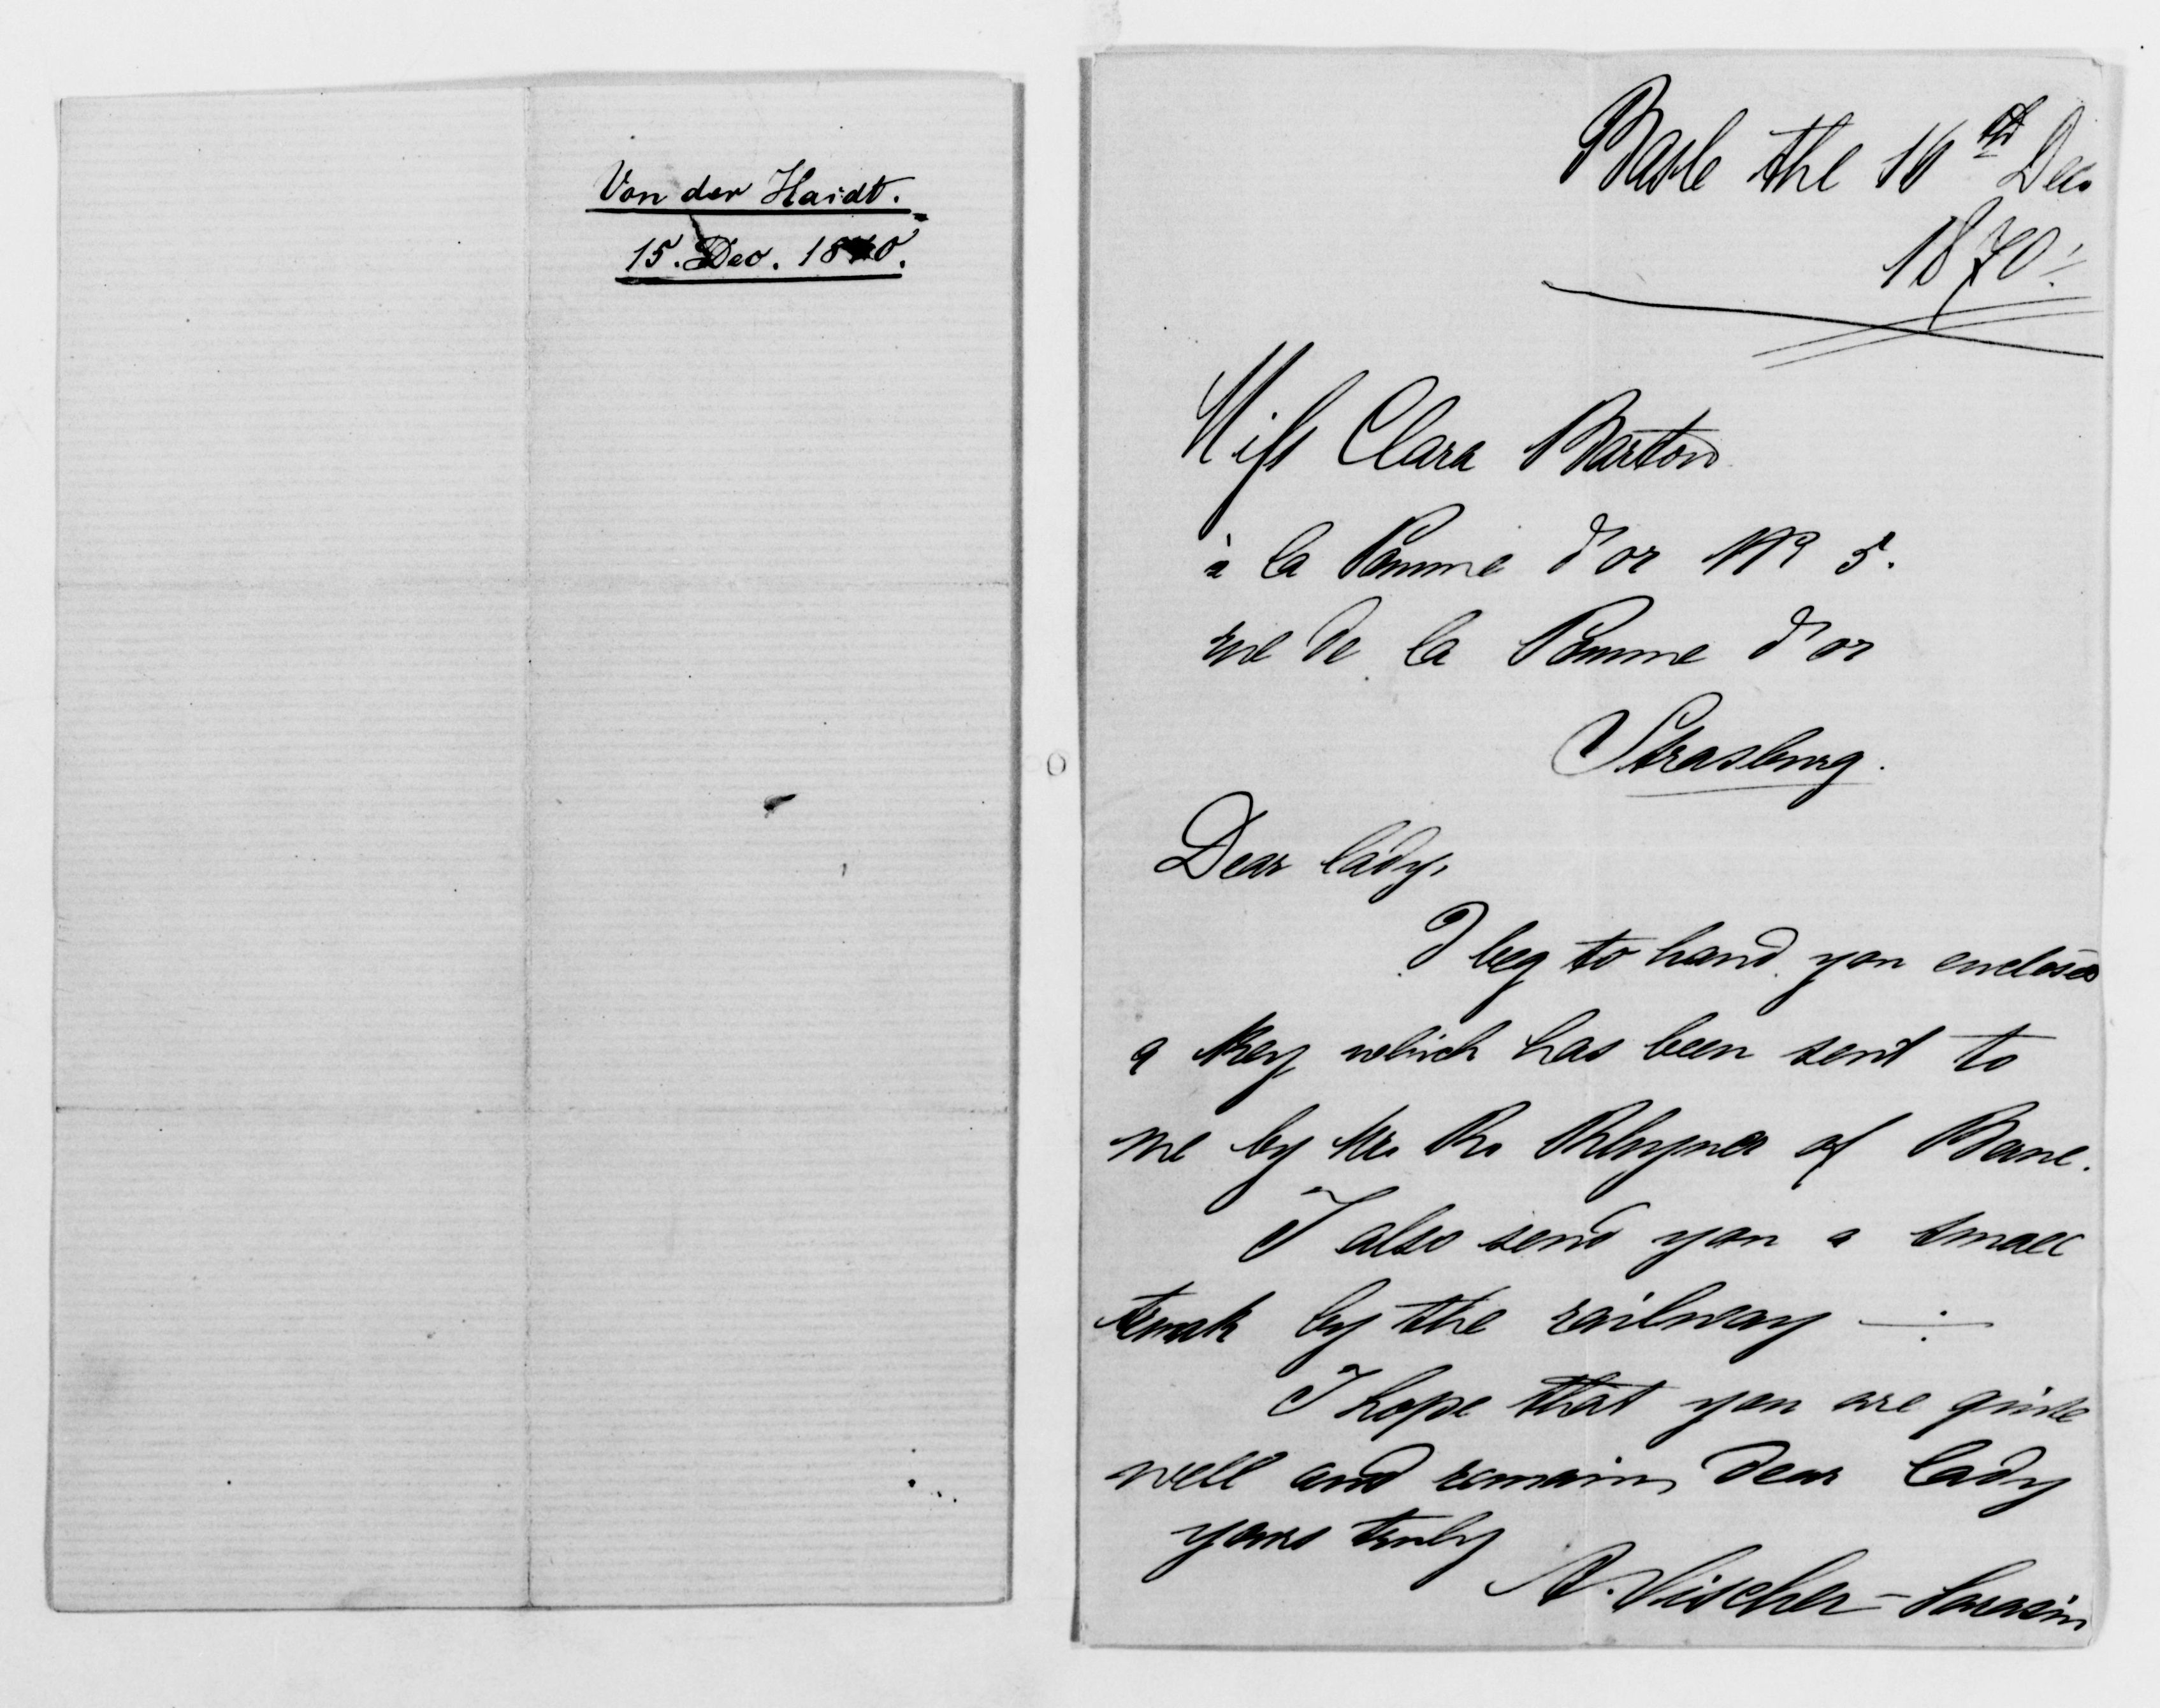 Von der Haidt.
15. Dec. 1870.
Basle the 16th Dec.
1870.
Miss Clara Barton
à la Pomme d'or No 5.
rue de la Pomme d'or
Strasburg.
Dear lady,
I beg to hand you enclosed
a key which has been sent to
me by Mr. Rhyner of Berne.
I also send you a small
trunk by the railway —
I hope that you are quite
well and remain, dear lady
yours truly
A. Vischer-Sarasin